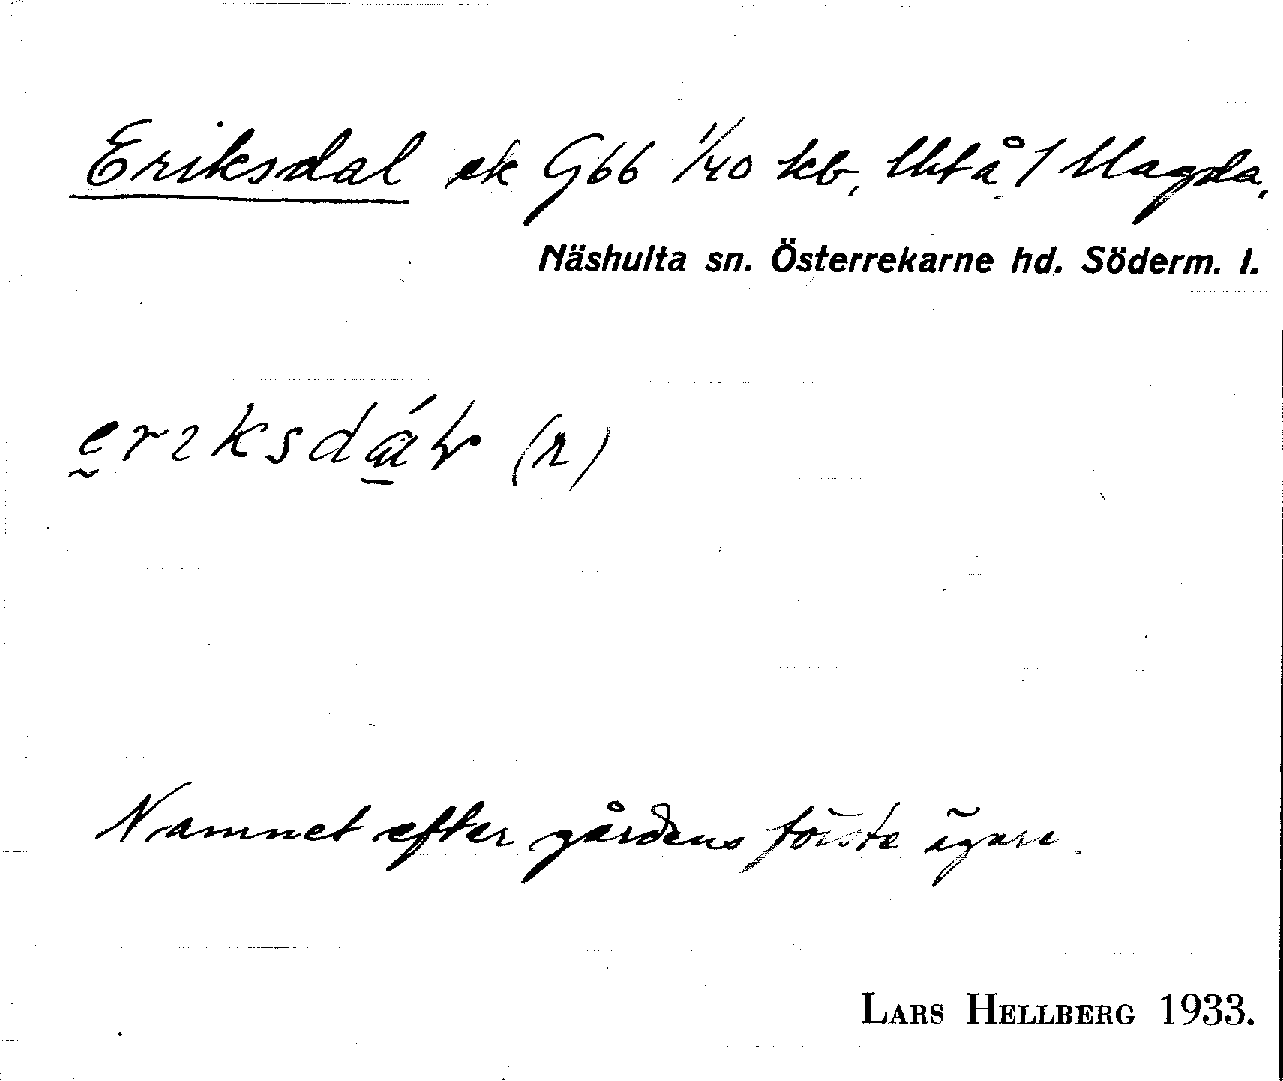 Eriksdal ek G66 1/40 kb, Uttå 1 Magda,
Näshulta sn. Österrekarne hd. Söderm. l.
eriksdál (n)
Namnet efter gårdens förste ägare.
LARS HELLBERG 1933.